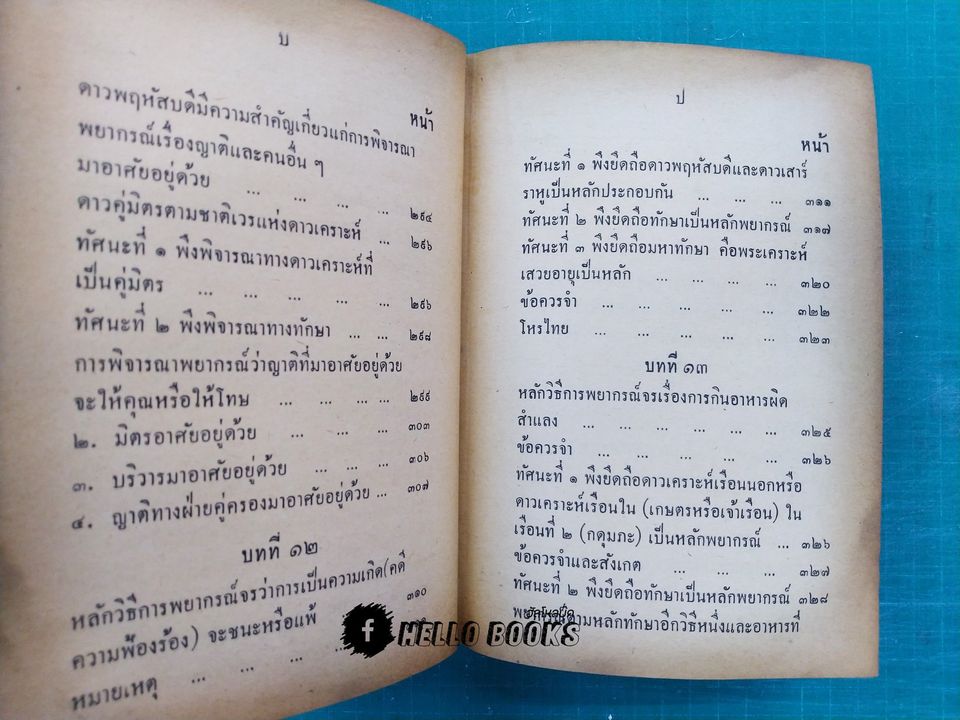 บ
หน้า
ดาวพฤหัสบดีมีความสำคัญเกี่ยวแก่การพิจารณา
พยากรณ์เรื่องญาติและคนอื่น ๆ
มาอาศัยอยู่ด้วย ... ... ... ... ๒๙๔
ดาวคู่มิตรตามชาติเวรแห่งดาวเคราะห์ ... ๒๙๖
ทัศนะที่ ๑ พึงพิจารณาทางดาวเคราะห์ที่
เป็นคู่มิตร ... ... ... ... ... ๒๙๖
ทัศนะที่ ๒ พึงพิจารณาทางทักษา ... ... ๒๙๘
การพิจารณาพยากรณ์ว่าญาติที่มาอาศัยอยู่ด้วย
จะให้คุณหรือให้โทษ ... ... ... ... ๒๙๙
๒. มิตรอาศัยอยู่ด้วย ... ... ... ๓๐๓
๓. บริวารมาอาศัยอยู่ด้วย ... ... ... ๓๐๖
๔. ญาติทางฝ่ายคู่ครองมาอาศัยอยู่ด้วย ... ๓๐๗
บทที่ ๑๒
หลักวิธีการพยากรณ์จรว่าการเป็นความเกิด(คดี
ความฟ้องร้อง) จะชนะหรือแพ้ ๓๑๐
หมายเหตุ ... ... ...
ป
หน้า
ทัศนะที่ ๑ พึงยึดถือดาวพฤหัสบดีและดาวเสาร์
ราหูเป็นหลักประกอบกัน ... ... ... ๓๑๑
ทัศนะที่ ๒ พึงยึดถือทักษาเป็นหลักพยากรณ์ ๓๑๗
ทัศนะที่ ๓ พึงยึดถือมหาทักษา คือพระเคราะห์
เสวยอายุเป็นหลัก ... ... ... ... ๓๒๐
ข้อควรจำ ... ... ... ... ... ๓๒๒
โหรไทย ... ... ... ... ... ๓๒๓
บทที่ ๑๓
หลักวิธีการพยากรณ์จรเรื่องการกินอาหารผิด
สำแลง ... ... ... ... ... ... ๓๒๕
ข้อควรจำ ... ... ... ... ... ๓๒๖
ทัศนะที่ ๑ พึงยึดถือดาวเคราะห์เรือนนอกหรือ
ดาวเคราะห์เรือนใน (เกษตรหรือเจ้าเรือน) ใน
เรือนที่ ๒ (กดุมภะ) เป็นหลักพยากรณ์ ... ๓๒๖
ข้อควรจำและสังเกต ... ... ... ๓๒๗
ทัศนะที่ ๒ พึงยึดถือทักษาเป็นหลักพยากรณ์ ๓๒๘
พยากรณ์ตามหลักทักษาอีกวิธีหนึ่งและอาหารที่
HELLO BOOKS